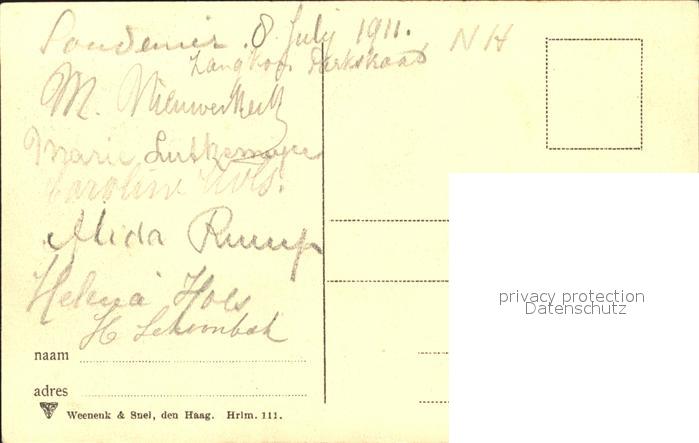 Souvenir. 8 July 1911.
NH
M. Nieuwerkerk
Marie Lutkemeyer
Caroline Hols.
Alida Rump
Helena Hols
H Schoonbek
naam
adres
Weenenk & Snel, den Haag. Hrlm. 111.
privacy protection
Datenschutz